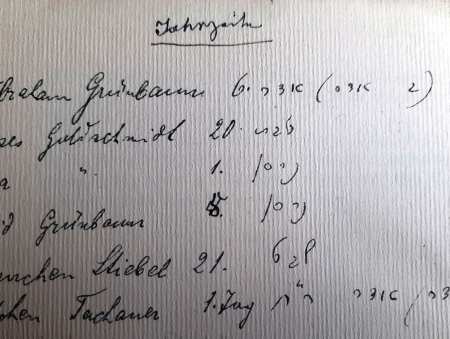 Jahrzeiten
braham Grünbaum 6. אדר (אדר 2)
ses Goldschmidt 20.
a " 1. ניסן
Grünbaum ניסן
nchen Stiebel 21.
chen Tachauer 1. Tag ר"ח אדר